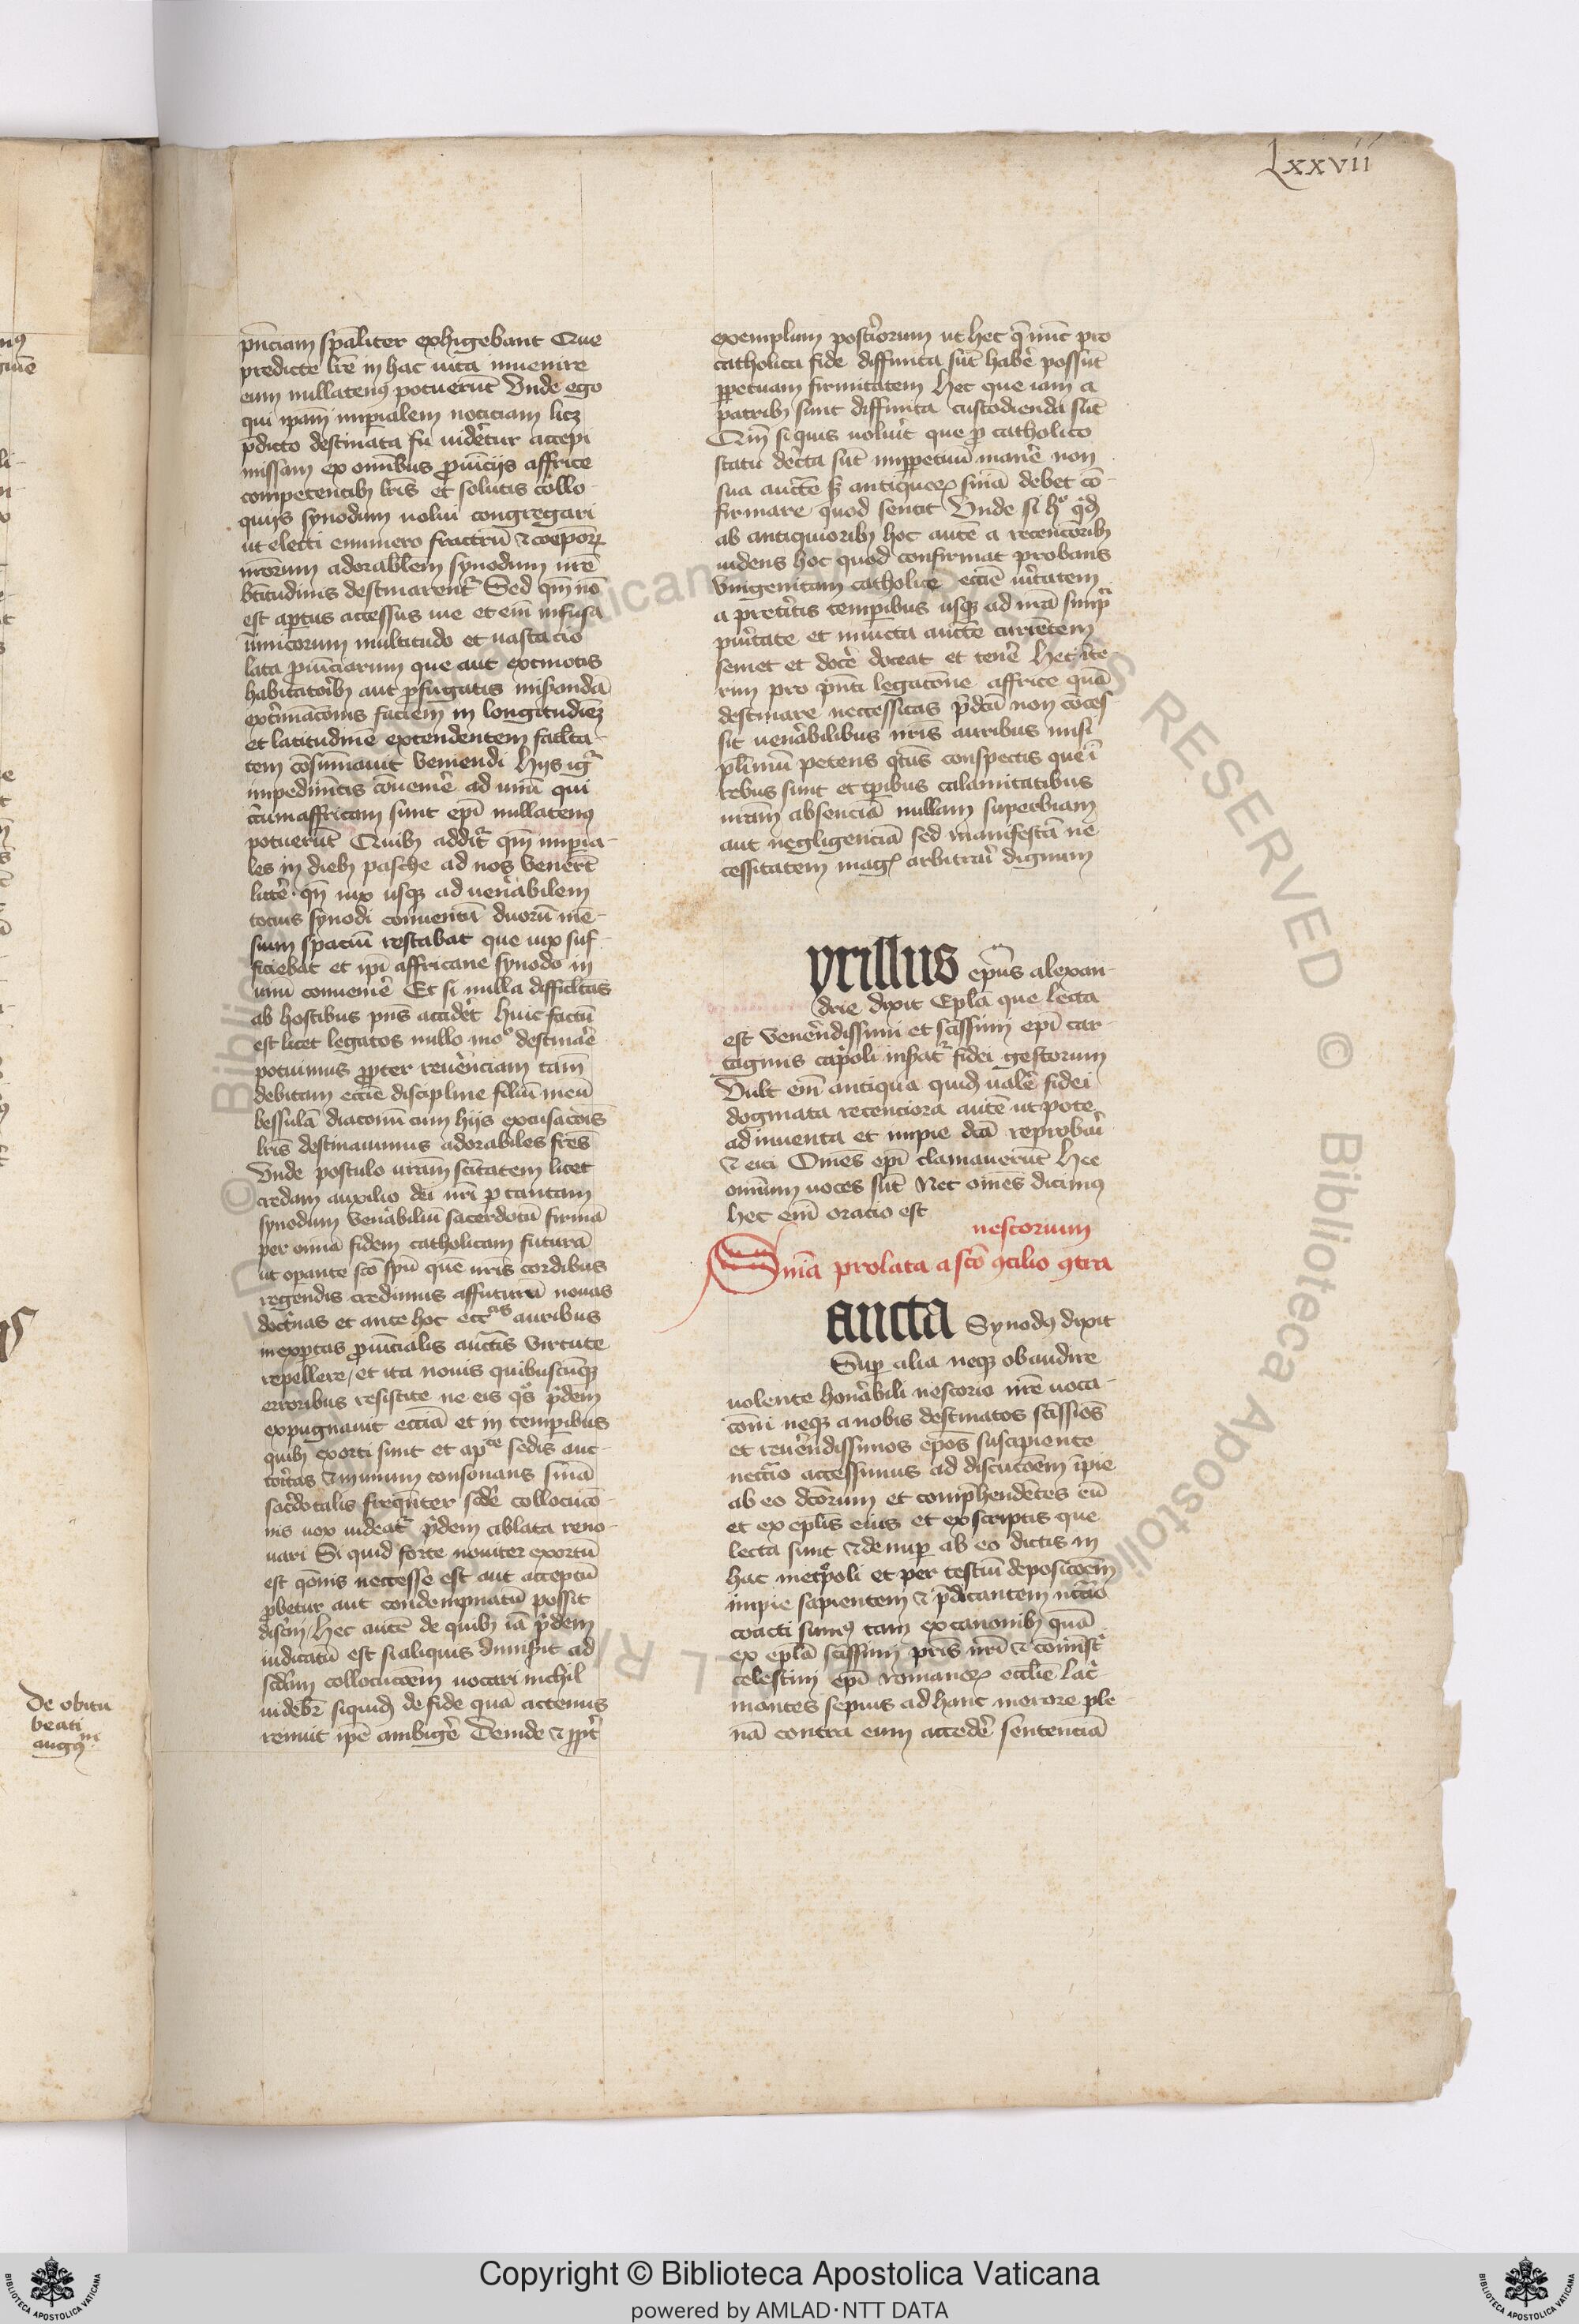 Lxxvii
pn̄ciam sp̄aliter exhigebant Que
predicte lr̄e in hac uita inuenire
eum nullatenꝯ potuerūt Vnde ego
qui ip̄am imp̄ialem noticiam licꝫ
p̄dicto destinata fu uidētur accepi
missam ex omībus prouīcijs affrice
competentibꝫ lr̄is et solutis collo-
quijs synodum uolui congregari
ut electi enumero fractrū ⁊ coep̄oꝝ
nr̄orum adorabilem synodum ur̄e
btītudinis destinarent᷑ Sed qm̄ nō
est ap̄tus accessus uie et em̄ infusa
inimicorum multitudo et uastacio
lata prouīciarum que aut extinctis
habitatoribꝫ aut p̄fugatis miserandā
ext̄minac̄onis faciem in longitudiēꝫ
et latitudinē extendentem facl̄ta-
tem cōsumauit veniendi hijs igr̄
impedimt̄is cōuenir̄e ad unū qui
circum affricam sunt ep̄i nullatenꝯ
potuerūt Quibꝫ addit᷑ qm̄ imp̄ia-
les in diebꝫ pasche ad nos venerūt
litter̄ · qn̄ uix usqꝫ ad uenābilem
tocius synodi conuentū duorū mē-
sium spaciū restabat que uix suf-
ficiebat et ip̄i affricane synodo in
unū conuenir̄e Et si nulla difficl̄tas
ab hostibus pn̄s accidēt Huic factū
est licet legatos nullo moº destinar̄e
potuimus ꝓpter reuēnciam tam̄
debitam eccīe discipline filiū meū
bessulā diaconū cum hijs excusac̄ois
lr̄is destinauimus adorabiles fr̄es
Vnde postulo ur̄am scītatem licet
credam auxilio dei nr̄i p tantam
synodum venābiliū sacerdotū firmā
per omīa fidem catholicam futurā
ut op̄ante sc̄o sp̄u que ur̄is cordibus
regendis credimus affuturū nouas
doctr̄nas et ante hoc ecc̄ᵃˢ auribus
inexp̄tas prouīcialis auctīs virtute
repellere / et ita nouis quibuscūqꝫ
erroribus resistite ne eis qºs pridem
expugnauit eccīā et in temp̄ibus
quibꝫ exorti sunt et ap̄ᶜᵉ sedis auc-
tor̄tas ⁊ in unum consonans sn̄iā
sac̄dotalis freqūnter scd̄e collocuc̄o-
nis uox uideat᷑ pridem ablata reno-
uari Si quid forte nouiter exortū
est qōnis neccesse est aut acceptū
ꝓbetur aut condempnatū possit
disciri / Hec autē de quibꝫ iā pridem
iudicatū est si aliquis dimiserit ad
scd̄am collocuc̄oem uocari nichil
uideb᷑r siquidꝫ de fide quā actenus
tenuit ip̄e ambiger̄e Deinde ⁊ ꝓpt̄
exemplum postiorum ut hec q̄ nūc pro
catholica fide diffinita sūt haber̄e possūt
ꝑpetuam firmitatem Hec que iam a
patribꝫ sunt diffinita custodienda sūt
Qm̄ siquis uoluerit que p catholico
statu decr̄ta sūt imꝑpetuū maner̄e non
sua auctē sꝫ antiqueoꝝ sn̄iā debet cō-
firmare quod sentit Vnde si hº qꝺ
ab antiquioribꝫ hoc autē a recencioribꝫ
uidens hoc quod confirmat probans
vnigenitam catholice eccīe uītatem
a pretītis temp̄ibus usqꝫ ad nr̄ā simp̄
puritate et inuicta auctē currētem
semet et docēr doceat et tenēr Hec īte
rim pro pn̄ti legac̄one affrice quā
destinare neccessitas p̄dcā non cōces
sit uenābilibus ur̄is auribus iussi
pl̄imū petens qtus conspectis que ī
rebus sunt et tp̄ibus calamitatibus
nr̄am absenciā nullam superbiam
aut negligenciā sed manifestā ne
cessitatem magꝭ arbitrari dignum
yrillus ep̄us alexan-
drie dixit Epl̄a que lecta
est venēndissimi et sc̄issimi ep̄i car-
taginis cap̄oli inserat᷑ fidei gestorum
Vult em̄ antiqua quidꝫ ualēr fidei
dogmata recenciora autē utpote
adinuenta et impie dc̄ā reprobari
⁊ eici Om̄es ep̄i clamauerūt Hee
omniū uoces sūt Nec om̄es dicimꝯ
hec em̄ oracio est
nestorium
Sn̄iā prolata a sc̄o ꝯcilio ꝯtra
ancta Synodꝯ dixit
Sup alia neqꝫ obaudire
uolente honābili nestorio nr̄e uoca-
c̄oni neqꝫ a nobis destinatos sc̄issīos
et reuēndissimos ep̄os suscipiente
neccārio accessimus ad discuc̄oem īpie
ab eo dc̄orum et comprehendētes eū
et ex epl̄is eius et ex scriptis que
lecta sunt ⁊ de nup ab eo dictis in
hac metropoli et per testiū deposic̄oem
impie sapientem ⁊ p̄dicantem nccāio
coacti sumꝯ tam ex canonibꝫ quā
ex epl̄ā sc̄issimi pr̄is nr̄i ⁊ cōminist̄
celestini ep̄i romaneꝝ eccl̄ie Lac̄-
mantes sepius ad hanc merore ple
nā contra eum accedēr sentenciā
De obitu
beati
augꝯⁿⁱ
Copyright © Biblioteca Apostolica Vaticana
powered by AMLAD·NTT DATA